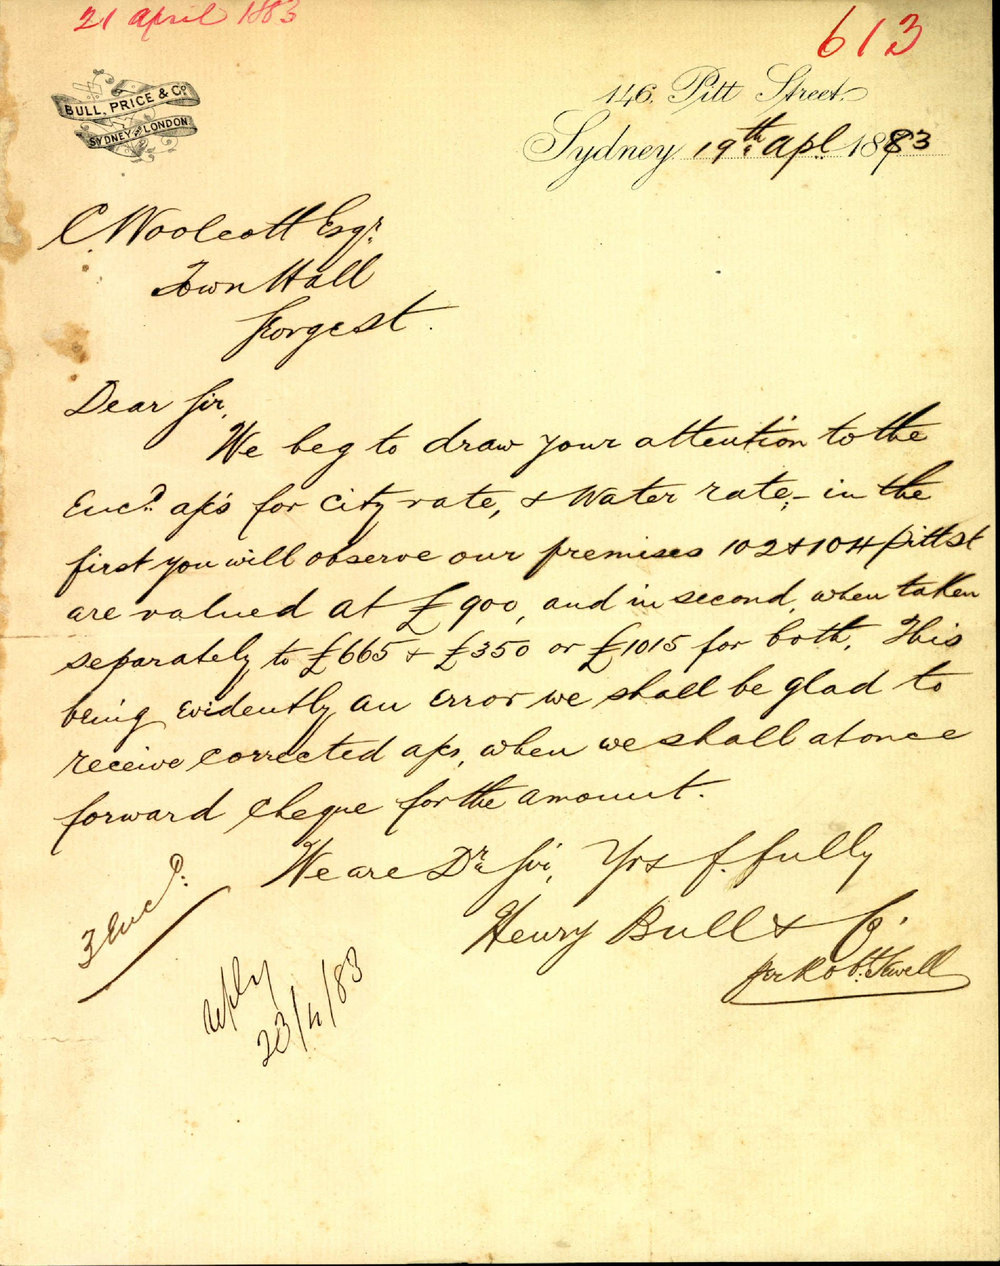 21 April 1883
613
BULL, PRICE & Co
SYDNEY AND LONDON
146. Pitt Street.
Sydney 19th Apl. 1883
C. Woolcott Esqr.
Town Hall
George St.
Dear Sir,
We beg to draw your attention to the
Encd. a/cs for City rate, & Water rate; - in the
first you will observe our premises 102 & 104 Pitt St
are valued at £900, and in second, when taken
separately to £665 & £350 or £1015 for both. This
being evidently an error we shall be glad to
receive corrected a/cs, when we shall at once
forward cheque for the amount.
We are Dr. Sir, Yrs f.fully
Henry Bull & Co.
per Robt.
3 Encd.
reply
23/4/83